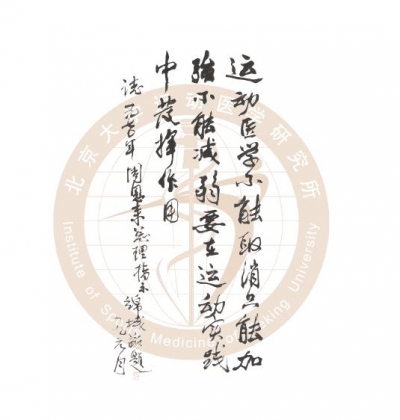 运动医学不能取消只能加
强不能减弱要在运动实践
中发挥作用
年周恩来总理指示 锦城敬题
元月
北京大学运动医学研究所
Institute of Sports Medicine of Peking University